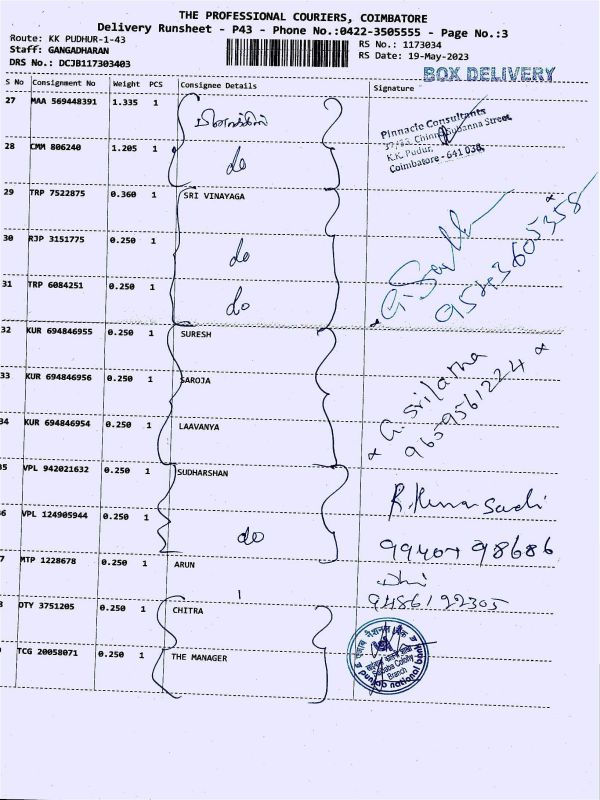 THE PROFESSIONAL COURIERS, COIMBATORE
Delivery Runsheet - P43 - Phone No.:0422-3505555 - Page No.:3
Route: KK PUDHUR-1-43
Staff: GANGADHARAN
DRS No.: DCJB117303403
RS No.: 1173034
RS Date: 19-May-2023
BOX DELIVERY
S No Consignment No Weight PCS Consignee Details Signature
27 MAA 569448391 1.335 1
Pinnacle Consultants
Chinna Subanna Street,
K.K. Pudur,
Coimbatore - 641 038.
28 CMM 806240 1.205 1 do
29 TRP 7522875 0.360 1 SRI VINAYAGA
30 RJP 3151775 0.250 1 do
31 TRP 6084251 0.250 1 do
32 KUR 694846955 0.250 1 SURESH
33 KUR 694846956 0.250 1 SAROJA
G. Srilatha
9659561224
34 KUR 694846954 0.250 1 LAAVANYA
35 VPL 942021632 0.250 1 SUDHARSHAN
6 VPL 124905944 0.250 1 do
99407 98686
7 MTP 1228678 0.250 1 ARUN
9486192305
8 DTY 3751205 0.250 1 CHITRA
TCG 20058071 0.250 1 THE MANAGER
पंजाब नैशनल बैंक
Saibaba Colony
Branch
punjab national bank